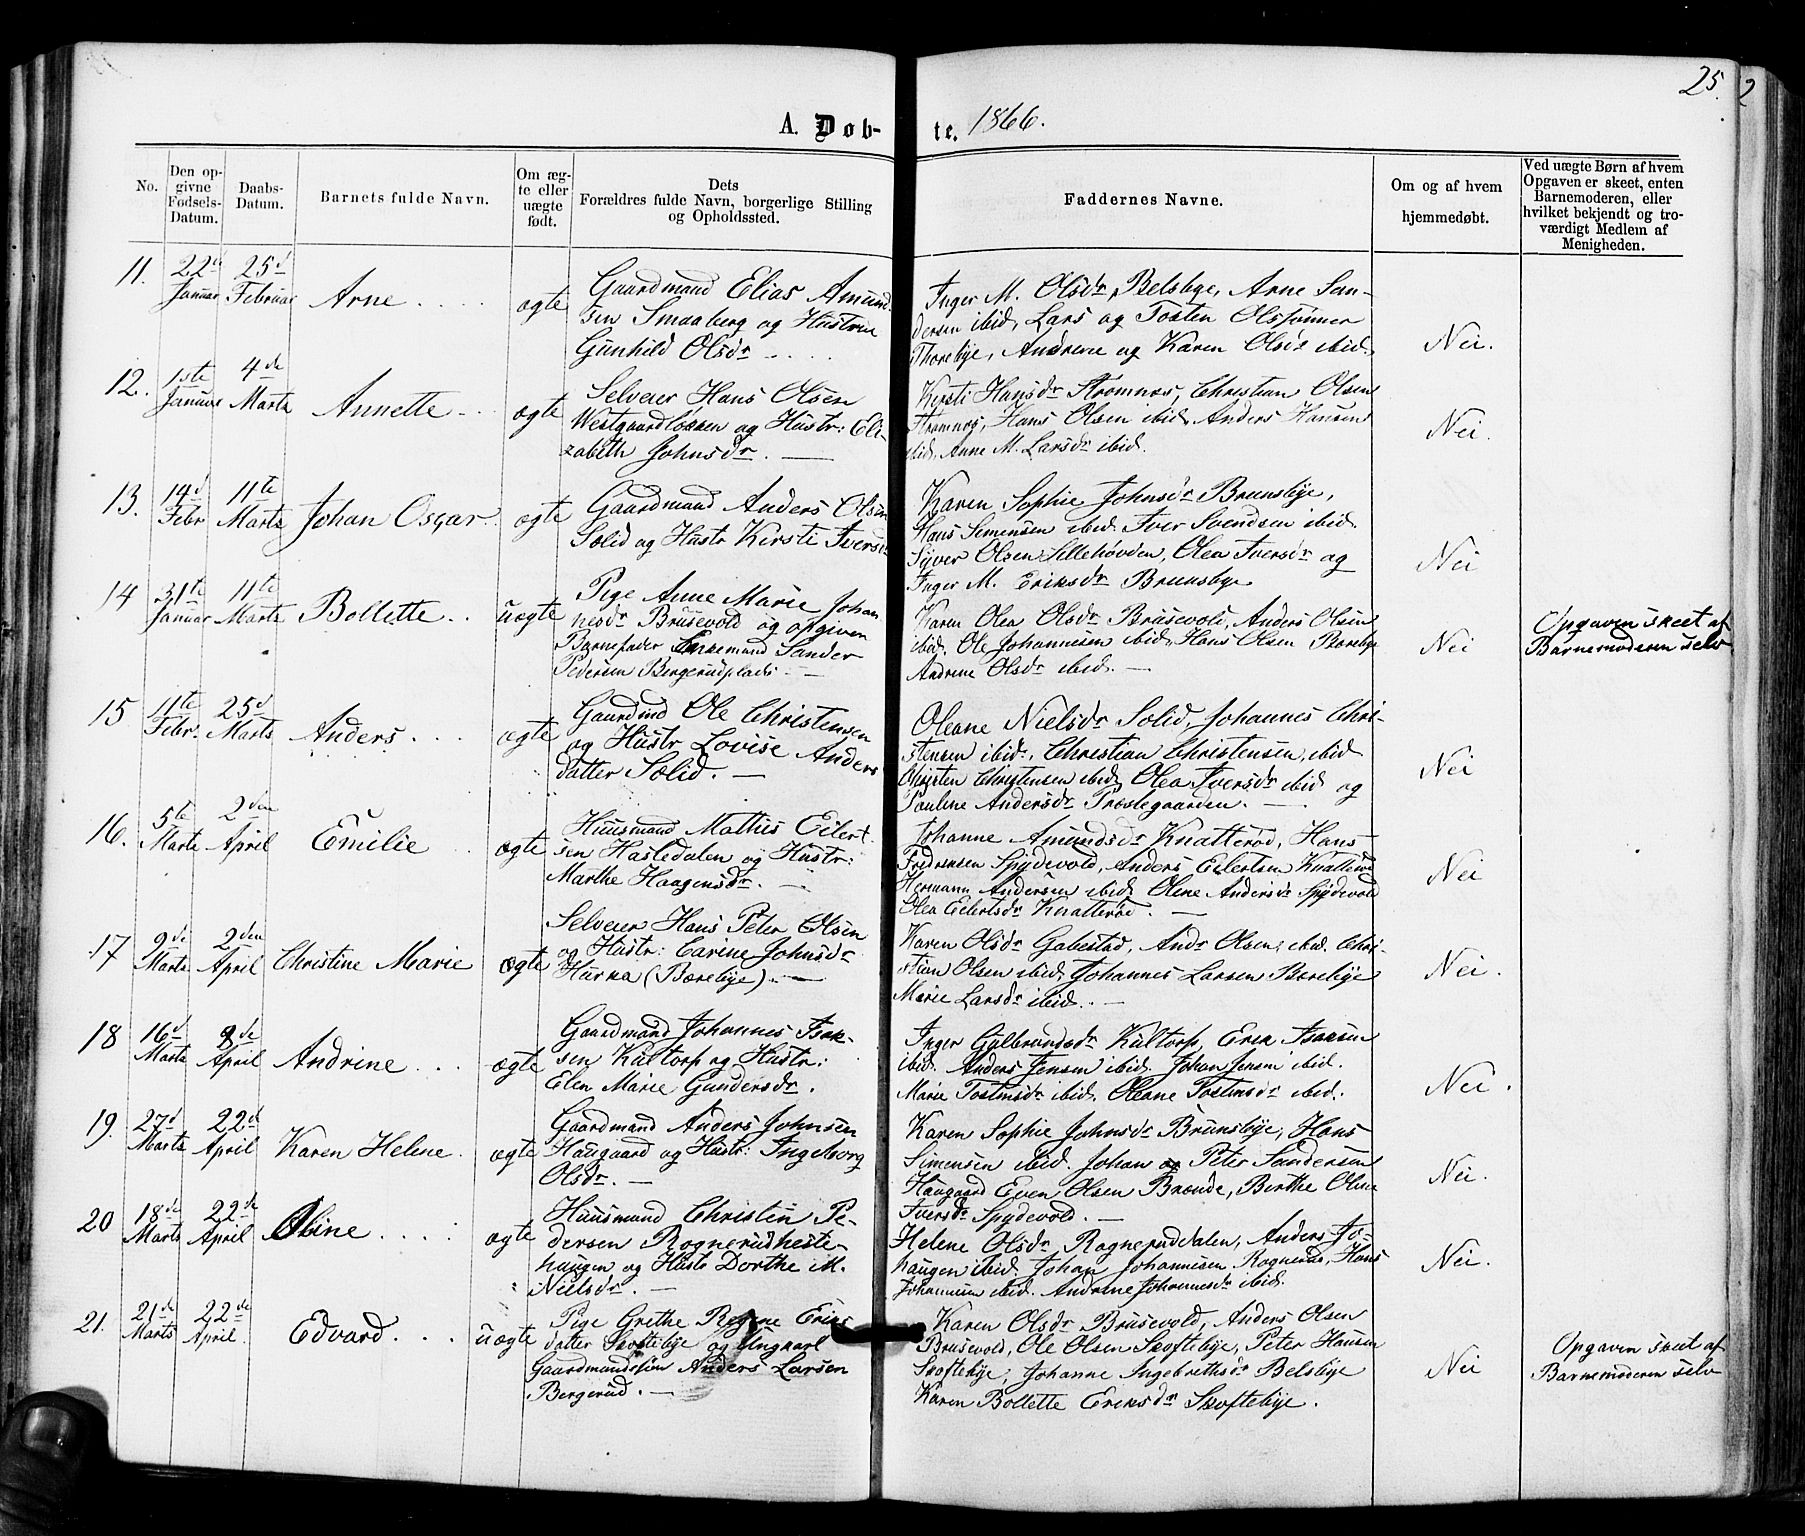 25. 2
A. Døb- te. 1866.
No.
Den opgivne Fødsels-Datum.
Daabs-Datum.
Barnets fulde Navn.
Om ægte eller uægte født.
Dets Forældres fulde Navn, borgerlige Stilling og Opholdssted.
Faddernes Navne.
Om og af hvem hjemmedøbt.
Ved uægte Børn af hvem Opgaven er skeet, enten Barnemoderen, eller hvilket bekjendt og troværdigt Medlem af Menigheden.
11. 22d Januar 25d Februar Arne ægte
Gaardmand Elias Amund-
sen Smaaberg og Hustrue
Gunhild Olsdr
Inger M. Olsdr Belsbye, Arne San-
dersen ibid, Lars og Tosten Olssønner
Thorebye, Andrene og Karen Olsdr ibid.
Nei.
12. 1ste Januar 4de Marts Annette ægte
Selveier Hans Olsen
Westgaardløkken og Hustr: Eli-
zabeth Johnsdr.
Kirsti Hansdr Strømnes, Christian Olsen
Strømnes, Hans Olsen ibid, Anders Hansen
ibid, Anne M. Larsdr ibid.
Nei.
13. 14d Febr 11te Marts Johan Oscar ægte
Gaardmand Anders Olsen
Solid og Hustr Kirsti Iversdr
Karen Sophie Johnsdr Brunsbye,
Hans Simensen ibid. Iver Svendsen ibid.
Syver Olsen Lillehøvden, Olea Iversdr og
Inger M. Eriksdr Brunsbye
Nei
14 31te Januar 11te Marts Bollette uægte
Pige Anne Marie Johan
nesdr Brusevold og opgiven
Barnefader Enkemand Sander
Pedersen Bergerudplads.
Karen Olea Olsdr Brusevold, Anders Olsen
ibid. Ole Johannesen ibid, Hans Olsen Bærebye
Andrine Olsdr ibid.
Nei
Opgaven skeet af
Barnemoderen selv
15 11te Febr. 25d Marts Anders ægte
Gaardmd Ole Christensen
og Hustr Lovise Anders
datter Solid.
Oleane Nielsdr Solid, Johannes Chri-
stensen ibid, Christian Christensen, ibid
Christen Christensen ibid, Olea Iversdr ibid og
Pauline Andersdr Præstegaarden.
Nei
16. 5te Marts 2den April Emilie ægte
Huusmand Mathis Eilert
sen Hasledalen og Hustr:
Marthe Haagensdr.
Johanne Amundsdr Knatterød, Hans
Fredriksen Spydevold, Anders Eilertsen Knatterød
Hermann Andersen ibid, Olene Andersdr Spydevold
Olea Eilertsdr Knatterød.
Nei
17 9de Marts 2den April Christine Marie ægte
Selveier Hans Peter Olsen
og Hustr: Carine Johnsdr
Hurka (Bærebye).
Karen Olsdr Gabestad, Andr Olsen, ibid. Chri-
stian Olsen ibid, Johannes Larsen Bærebye
Marie Larsdr ibid.
Nei.
18 16d Marts 8de April Andrine ægte
Gaardmand Johannes Isak-
sen Kultorp og Hustr:
Elen Marie Gundersdr.
Inger Gulbrandsdr Kultorp, Erik Isaksen
ibid. Anders Jensen ibid. Johan Jensen ibid.
Marie Tostensdr ibid, Oleane Tostensdr ibid.
Nei.
19. 27d Marts 22d April Karen Helene ægte
Gaardmand Anders Johnsen
Haugaard og Hustr: Ingeborg
Olsdr.
Karen Sophie Johnsdr Brunsbye, Hans
Simensen ibid. Johan og Peter Sandersen
Haugaard Even Olsen Brænde, Berthe Oline
Iversdr Spydevold.
Nei.
20 18de Marts 22de April Oline ægte
Huusmand Christin Pe-
dersen Rognerudheste-
haugen og Hustr Dorthe M.
Nielsdr.
Helene Olsdr Rognerud dalen, Anders Jo-
haugen ibid, Johan Johannesen Rognerud, Hans
Johannesen ibid. Andrine Johannesdr ibid.
Nei.
21. 21de Marts 22de April. Edvard uægte
Pige Grethe Regine Eriks
datter Skoftebye og Ungkarl
Gaardmandssøn Anders Larsen
Bergerud.
Karen Olsdr Brusevold, Anders Olsen
Brusevold, Ole Olsen Skoftebye, Peter Hansen
Skoftebye, Johanne Ingebrethsdr Belsbye
Karen Bollette Eriksdr Skoftebye.
Nei
Opgaven skeet af
Barnemoderen selv